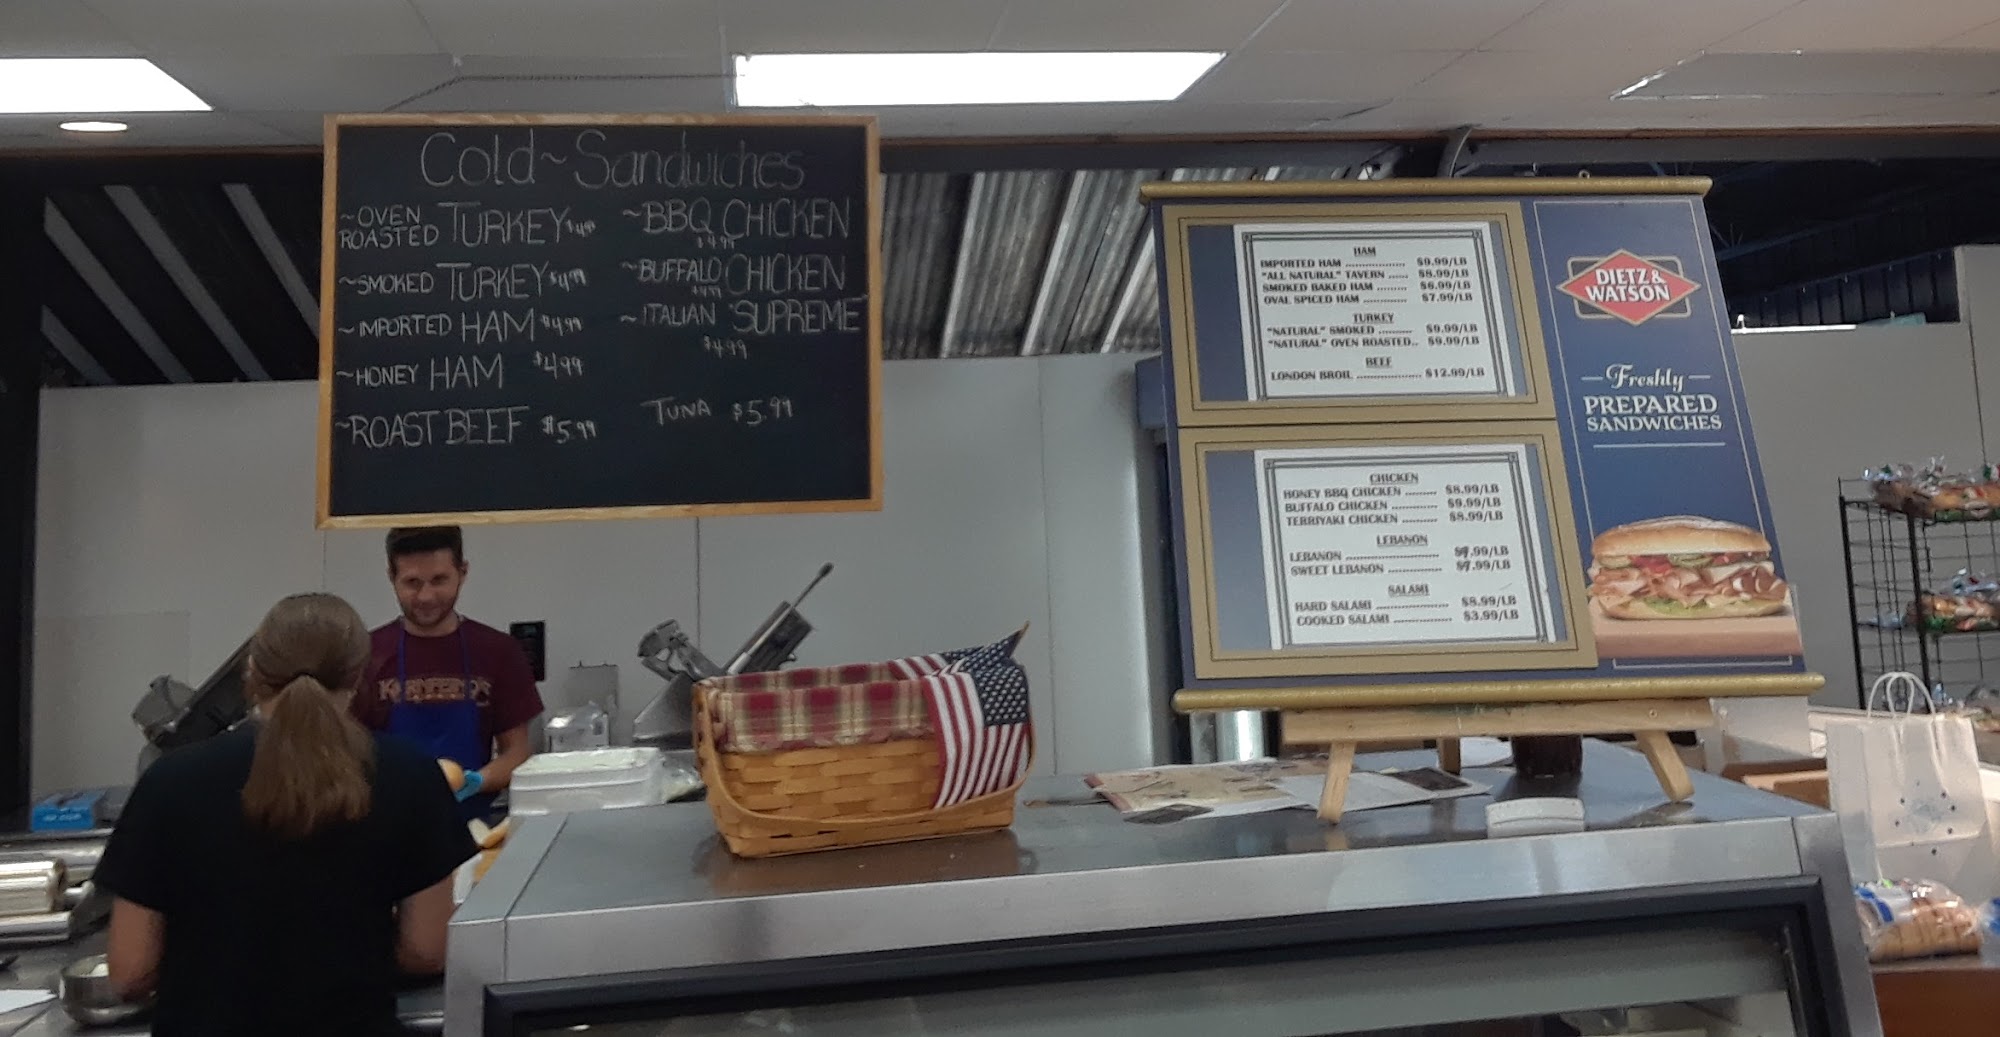 Cold~Sandwiches
~OVEN ROASTED TURKEY $4.99
~SMOKED TURKEY $4.99
~IMPORTED HAM $4.99
~HONEY HAM $4.99
~ROAST BEEF $5.99
~BBQ CHICKEN
$4.99
~BUFFALO CHICKEN
$4.99
~ITALIAN "SUPREME"
$4.99
TUNA $5.99
HAM
IMPORTED HAM .............. $9.99/LB
"ALL NATURAL" TAVERN ...... $8.99/LB
SMOKED BAKED HAM ........ $6.99/LB
OVAL SPICED HAM ............ $7.99/LB
TURKEY
"NATURAL" SMOKED ......... $9.99/LB
"NATURAL" OVEN ROASTED.. $9.99/LB
BEEF
LONDON BROIL .................. $12.99/LB
CHICKEN
HONEY BBQ CHICKEN ........ $8.99/LB
BUFFALO CHICKEN ............ $9.99/LB
TERRIYAKI CHICKEN ......... $8.99/LB
LEBANON
LEBANON ........................ $9.99/LB
SWEET LEBANON .............. $9.99/LB
SALAMI
HARD SALAMI .................. $8.99/LB
COOKED SALAMI ............... $3.99/LB
DIETZ &
WATSON
Freshly
PREPARED
SANDWICHES